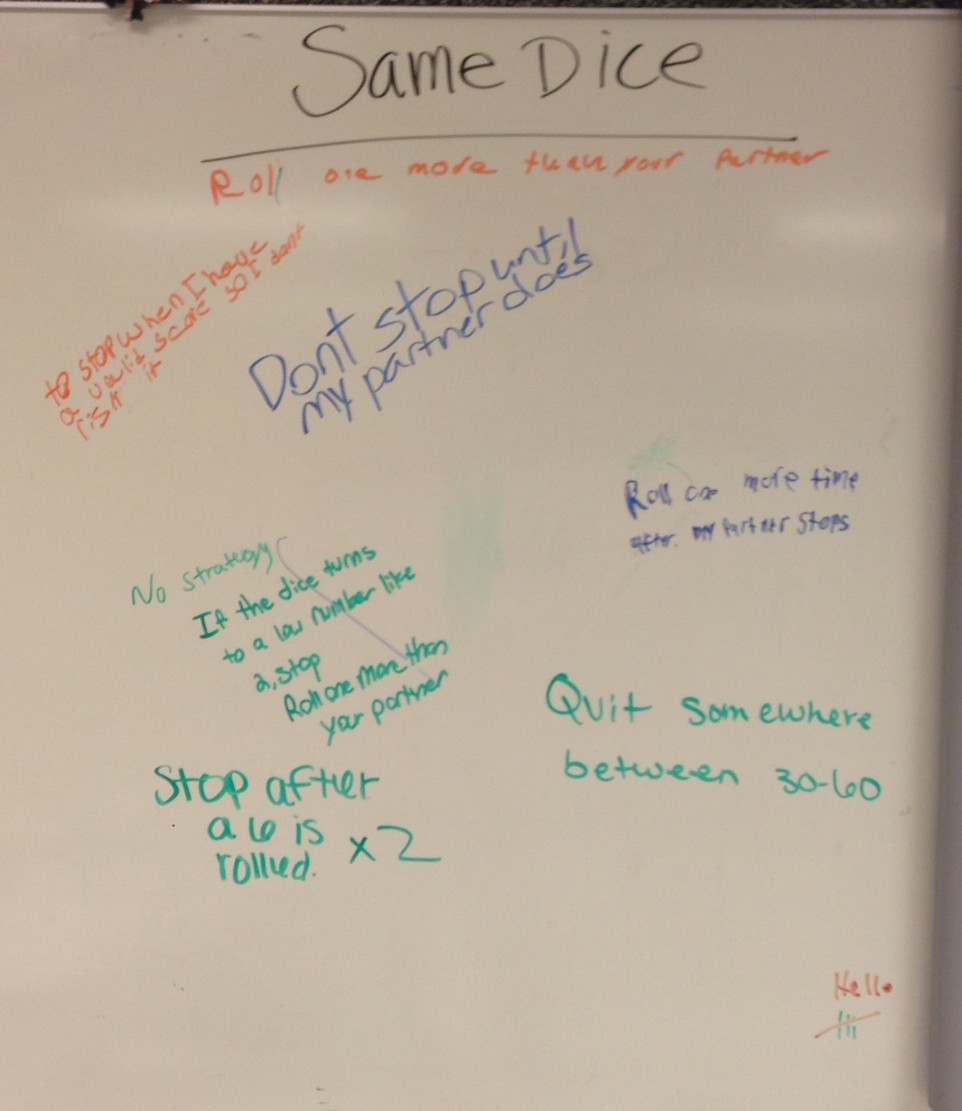 Same Dice
Roll one more than your Partner
to stop when I have
a valid score so I dont
risk it
Dont stop until
my partner does
Roll one more time
after my Partner Stops
No strategy
If the dice turns
to a low number like
2, stop
Roll one more than
your partner
Quit somewhere
between 30-60
Stop after
a 6 is
rolled. x2
Hello